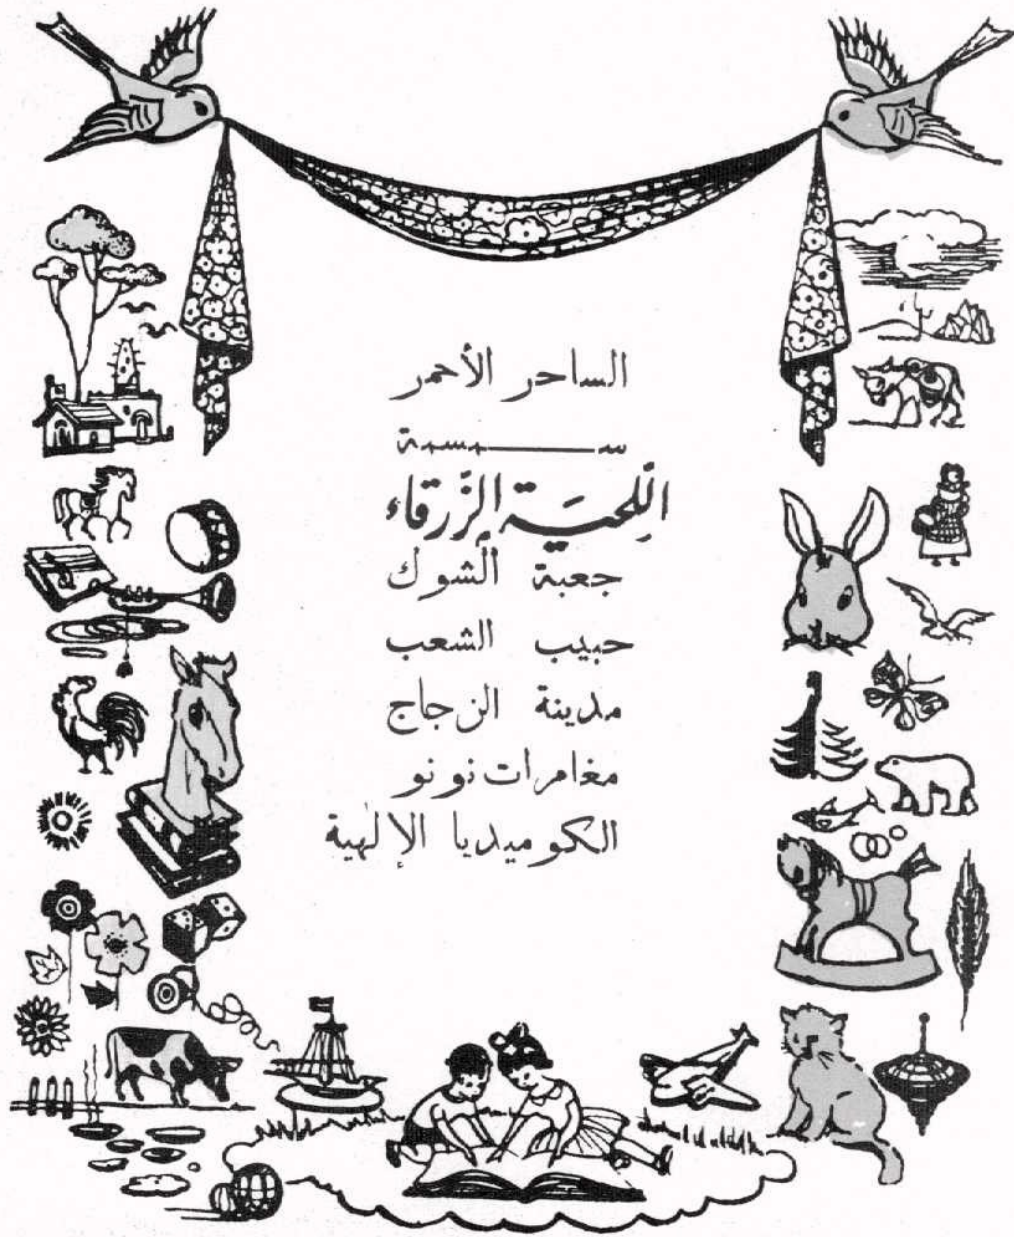 الساحر الأحمر
سمسمة
اللِّحيَة الزَّرقاء
جعبة الشوك
حبيب الشعب
مدينة الزجاج
مغامرات نونو
الكوميديا الإلهية